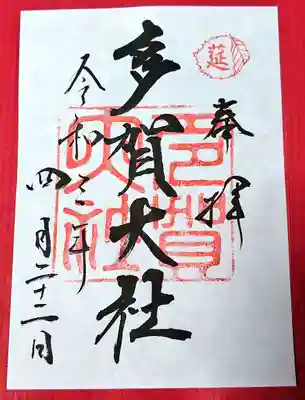 莚
奉拝
多賀大社
多賀
大社
令和三年
四月二十二日